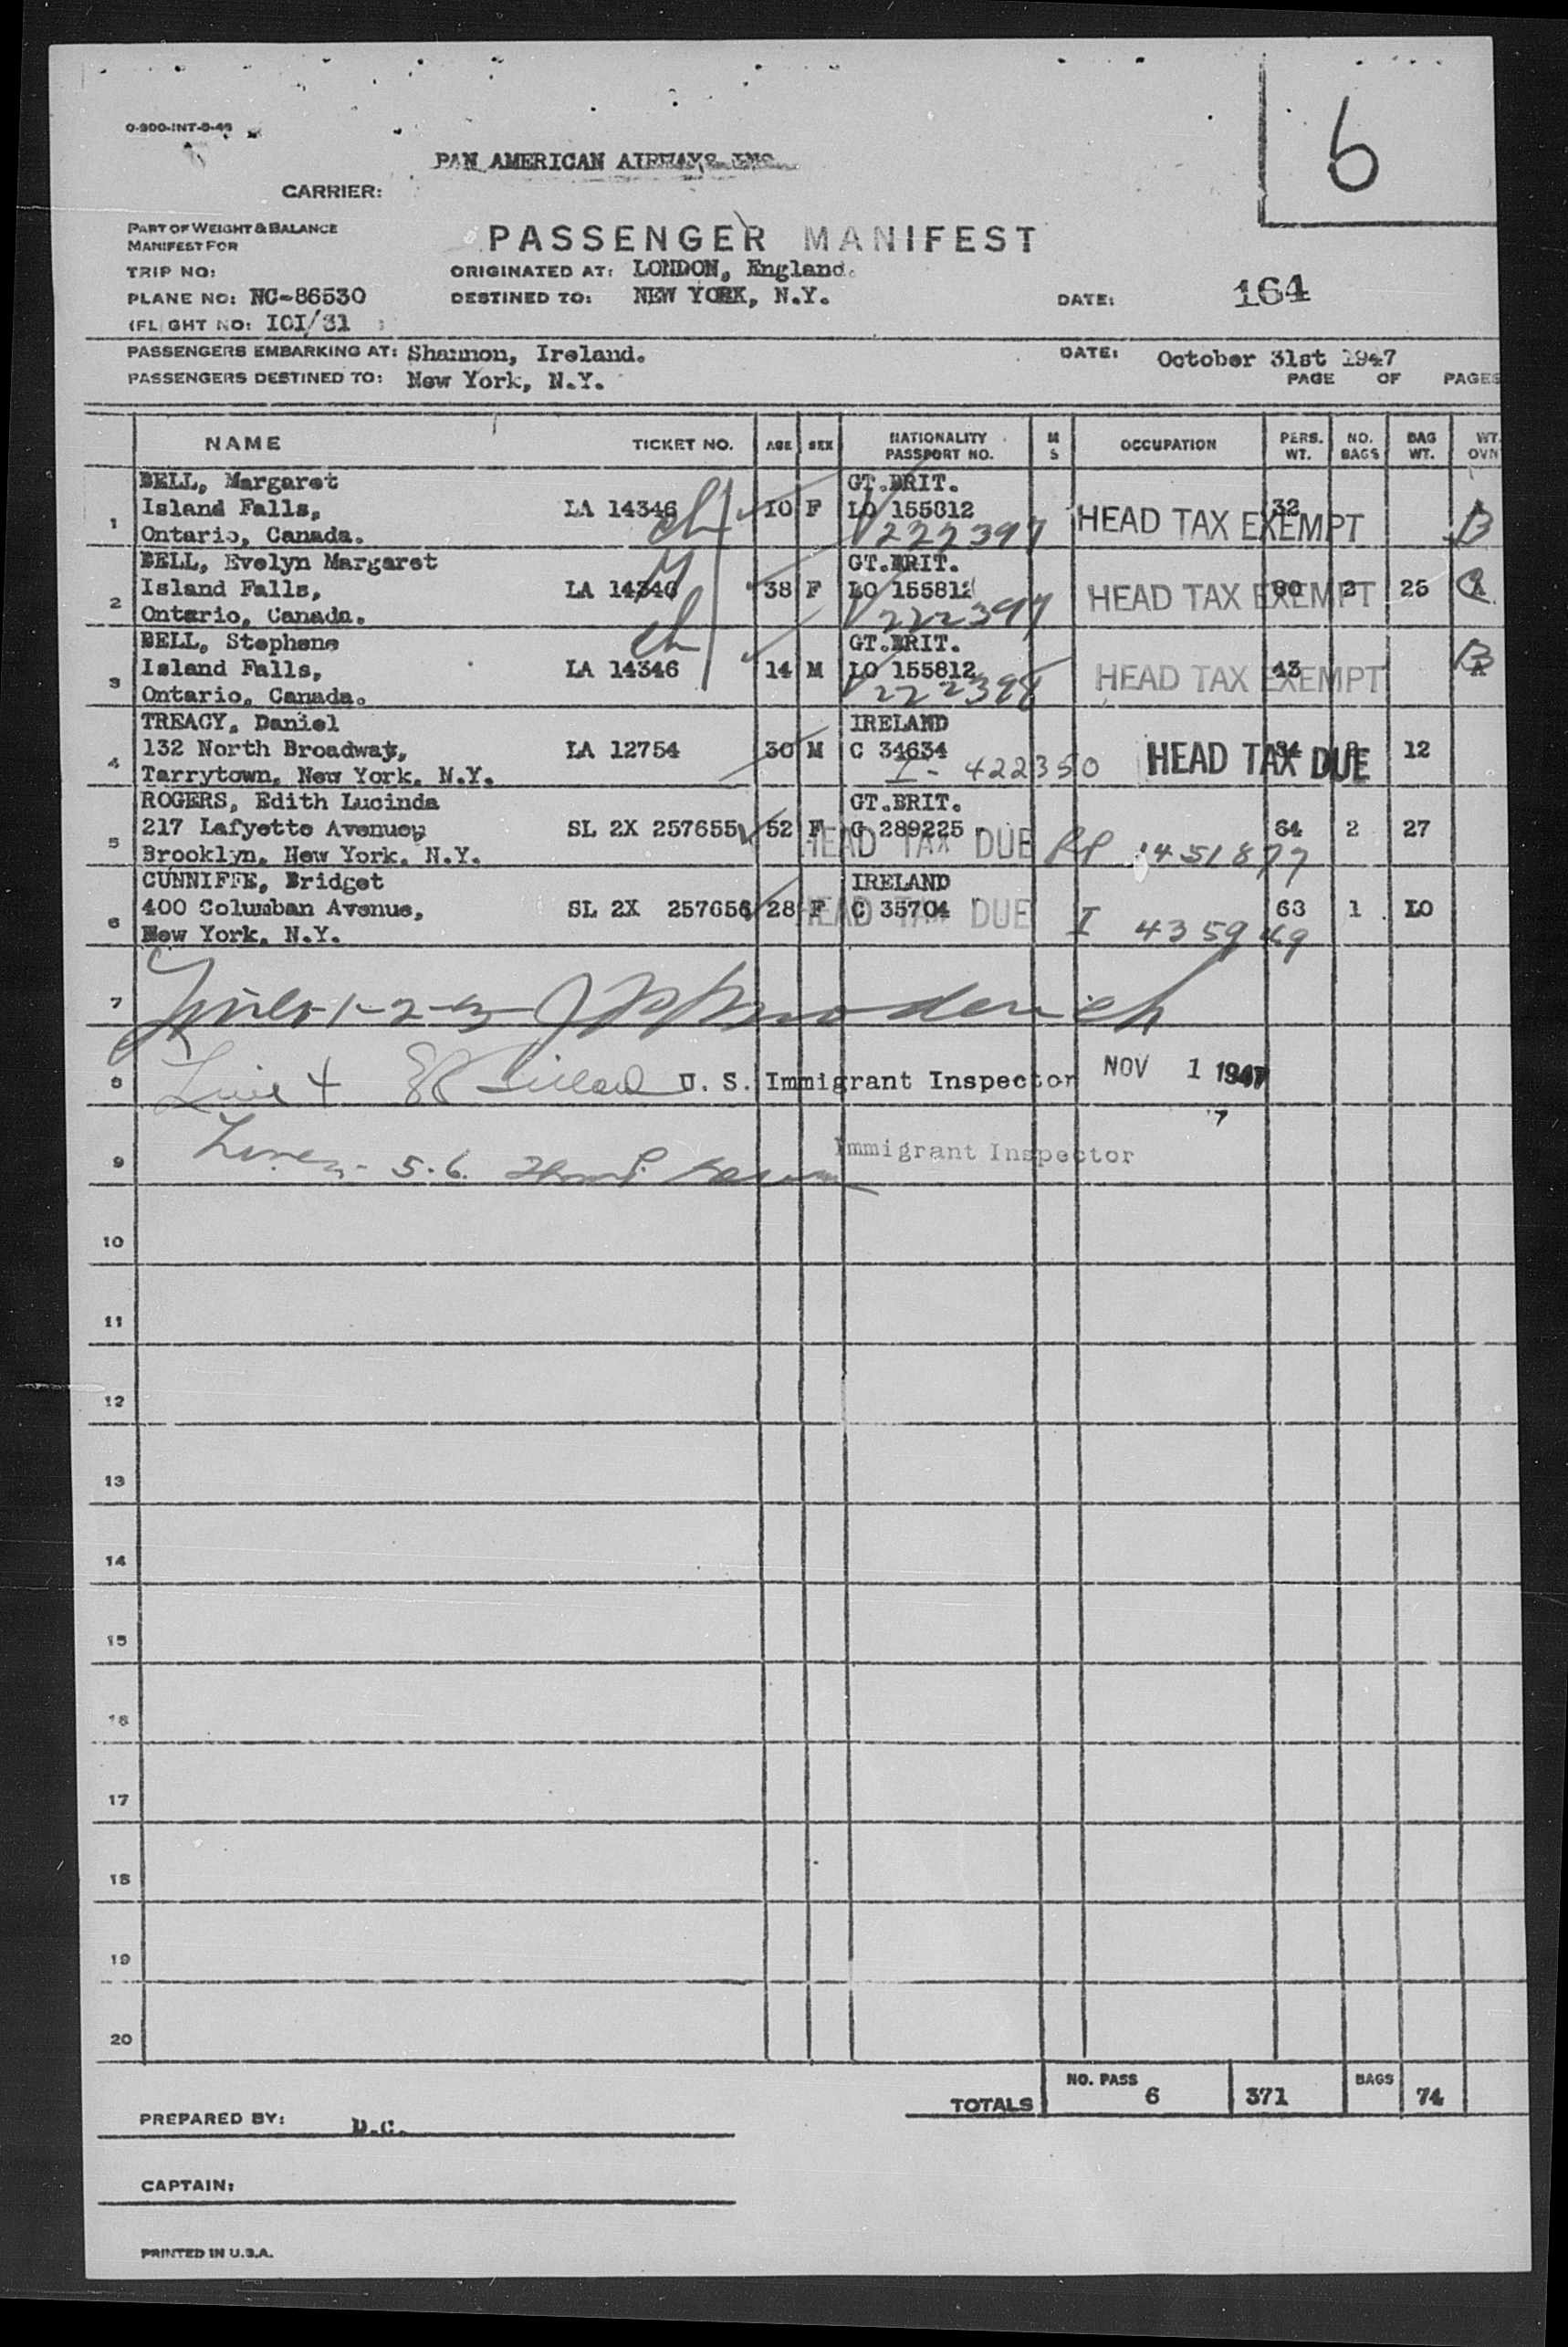 O-900-INT-9-46
6
PAN AMERICAN AIRWAYS INC.
CARRIER:
PART OF WEIGHT & BALANCE
MANIFEST FOR
PASSENGER MANIFEST
TRIP NO: ORIGINATED AT: LONDON, England.
PLANE NO: NC-86530 DESTINED TO: NEW YORK, N.Y. DATE: 164
(FLIGHT NO: IOI/31 )
PASSENGERS EMBARKING AT: Shannon, Ireland. DATE: October 31st 1947
PASSENGERS DESTINED TO: New York, N.Y. PAGE OF PAGES
NAME TICKET NO. AGE SEX NATIONALITY PASSPORT NO. M S OCCUPATION PERS. WT. NO. BAGS BAG WT. WT. OVN
BELL, Margaret GT.BRIT.
1 Island Falls, LA 14346 ch IO F LO 155812 HEAD TAX EXEMPT 32 B
Ontario, Canada. 222397
BELL, Evelyn Margaret GT.BRIT.
2 Island Falls, LA 14346 38 F LO 155812 HEAD TAX EXEMPT 2 25
Ontario, Canada. 222397
BELL, Stephene ch GT.BRIT.
3 Island Falls, LA 14346 14 M LO 155812 HEAD TAX EXEMPT 43 B
Ontario, Canada. 222398
TREACY, Daniel IRELAND
4 132 North Broadway, LA 12754 30 M C 34634 HEAD TAX DUE 12
Tarrytown, New York, N.Y. I - 422350
ROGERS, Edith Lucinda GT.BRIT.
5 217 Lafyette Avenue, SL 2X 257655 52 F C 289225 HEAD TAX DUE 64 2 27
Brooklyn, New York, N.Y. RP 1451877
CUNNIFFE, Bridget IRELAND
6 400 Columban Avenue, SL 2X 257656 28 F C 35704 HEAD TAX DUE 63 1 IO
New York, N.Y. I 435949
7 Lines 1-2-3
8 Line 4 U. S. Immigrant Inspector NOV 1 1947
7
9 Lines - 5.6. Immigrant Inspector
10
11
12
13
14
15
16
17
18
19
20
TOTALS NO. PASS 6 371 BAGS 74
PREPARED BY: D.C.
CAPTAIN:
PRINTED IN U.S.A.